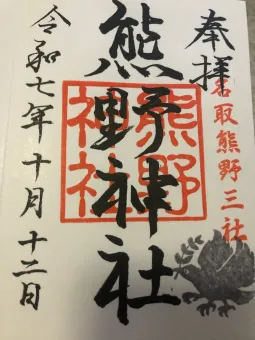 奉拝
名取熊野三社
熊野神社
熊野神社
令和七年十月十二日